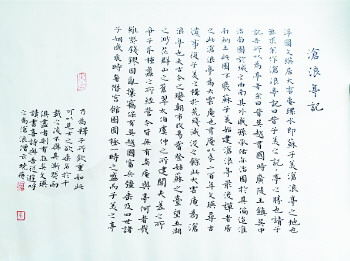 滄浪亭記
浮圖文瑛居大雲庵環水即蘇子美滄浪亭之地也
亟求余作滄浪亭記曰昔子美之記記亭之勝也請子
記吾所以為亭者余曰昔吳越有國時廣陵王鎮吳中
治南園於子城之西南其外戚孫承佑亦治園於其偏迨淮
海納土此園不廢蘇子美始建滄浪亭最後禪者居
之此滄浪亭為大雲庵也有庵以來二百年文瑛尋古
遺事復子美之構於荒殘滅沒之餘此大雲庵為滄
浪亭也夫古今之變朝市改易嘗登姑蘇之臺望五湖
之渺茫群山之蒼翠太伯虞仲之所建闔閭夫差之所爭
子胥種蠡之所經營今皆無有矣庵與亭何為者哉
雖然錢鏐因亂攘竊保有吳越國富兵強垂及四世諸
子姻戚乘時奢僭宮館苑囿極一時之盛而子美之亭
乃為釋子所欽重如此
可以見士之欲垂名於千
載之後不與其澌然而
俱盡者則有在矣文瑛
讀書喜詩與吾徒遊呼
之為滄浪僧云